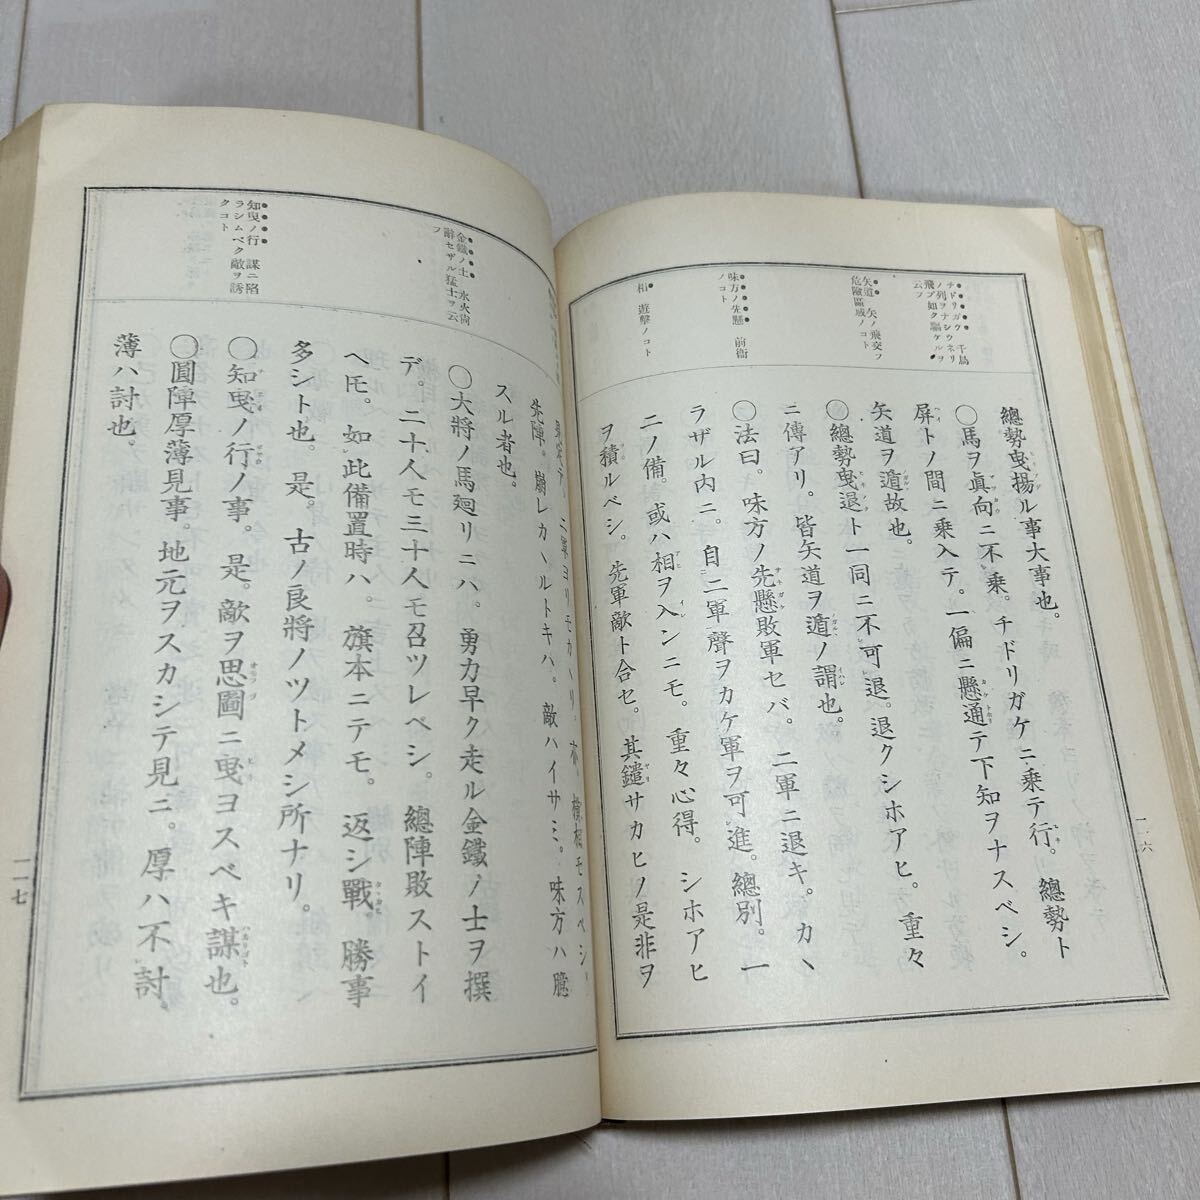 チドリガク 千鳥
ノ列ヲナシウネリ
飛ブ如ク驅ケルヲ
云フ
矢道 矢ノ飛交フ
危險區域ノコト
味方ノ先懸 前衞
ノコト
相 遊擊ノコト
總勢曳揚ル事大事也。
○馬ヲ眞向ニ不乘。チドリガケニ乘テ行。總勢ト
屛トノ間ニ乘入テ。一偏ニ懸通テ下知ヲナスベシ。
矢道ヲ遁故也。
○總勢曳退ト一同ニ不可退。退クシホアヒ。重々
ニ傳アリ。皆矢道ヲ遁ノ謂也。
○法曰。味方ノ先懸敗軍セバ。二軍ニ退キ。カヽ
ラザル內ニ。自二軍聲ヲカケ軍ヲ可進。總別。一
二ノ備。或ハ相ヲ入ンニモ。重々心得。シホアヒ
ヲ積ルベシ。先軍敵ト合セ。其鑓サカヒノ是非ヲ
一一六
金鐵ノ士 水火尙
辭セザル猛士ヲ云
フ
知曳ノ行 謀ニ陷
ラシムベク敵ヲ誘
クコト
先陣。崩レカヽルトキハ。敵ハイサミ。味方ハ臆
スル者也。
○大將ノ馬廻リニハ。勇力早ク走ル金鐵ノ士ヲ撰
デ。二十人モ三十人モ召ツレベシ。總陣敗ストイ
ヘ𪜈。如此備置時ハ。旗本ニテモ。返シ戰。勝事
多シト也 是。古ノ良將ノツトメシ所ナリ。
○知曳ノ行ノ事。是。敵ヲ思圖ニ曳ヨスベキ謀也。
○圓陣厚薄見事。地元ヲスカシテ見ニ。厚ハ不討。
薄ハ討也。
一一七